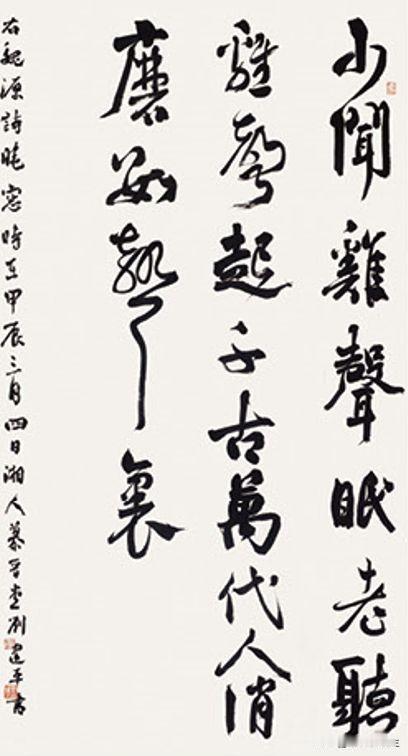 少聞雞聲眠老聽
雞聲起千古萬代人消
磨數聲裏
右魏源詩曉窗時在甲辰三月四日湘人慕劉建平書